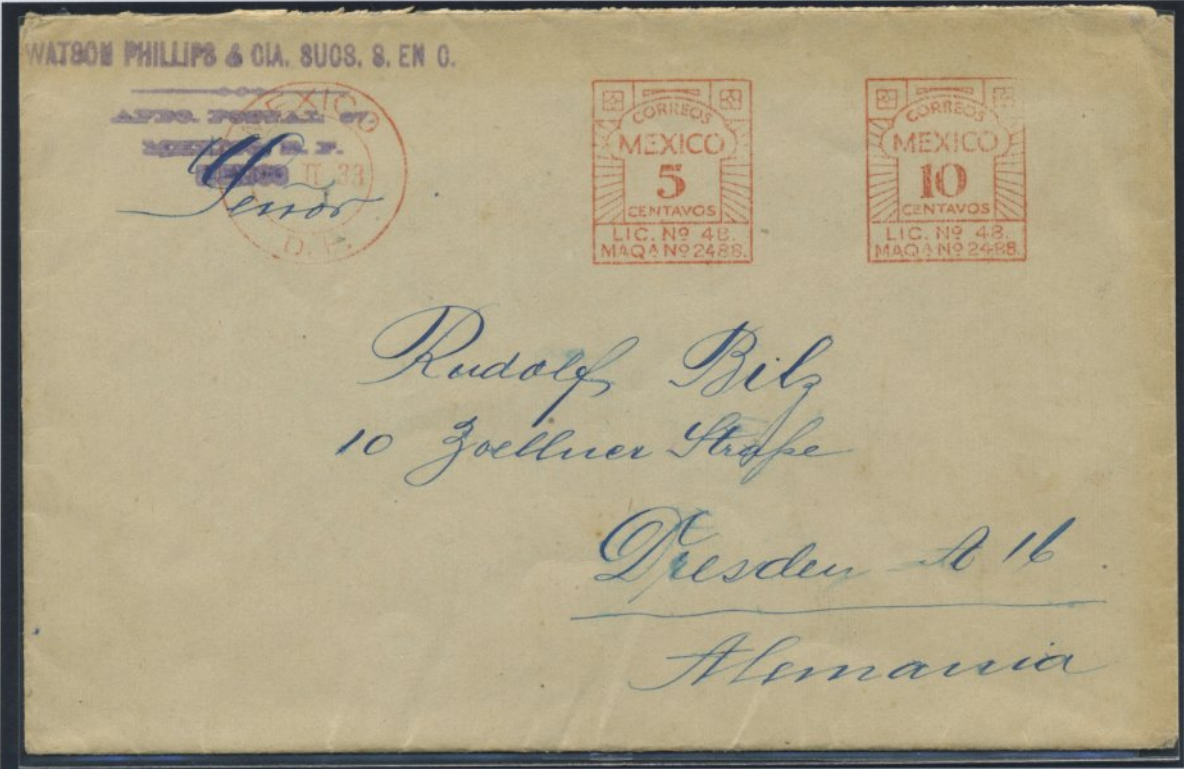 WATSON PHILLIPS & CIA. SUCS. S. EN C.
APDO. POSTAL 67
MEXICO, D. F.
MEXICO
II 33
D. F.
Señor
CORREOS
MEXICO
5
CENTAVOS
LIC. Nº 48.
MAQA Nº 2488.
CORREOS
MEXICO
10
CENTAVOS
LIC. Nº 48.
MAQA Nº 2488.
Rudolf Bilz
10 Zoellner Straße
Dresden A 16
Alemania